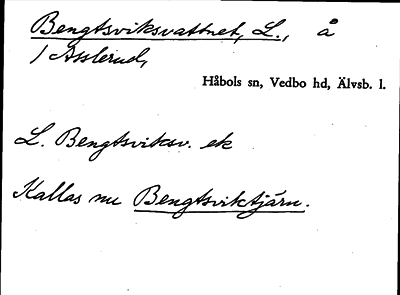 Bengtsviksvattnet, L., å
/ Asslerud,
Håbols sn, Vedbo hd, Älvsb. l.
L. Bengtsviksv. ek
Kallas nu Bengtsviktjärn.